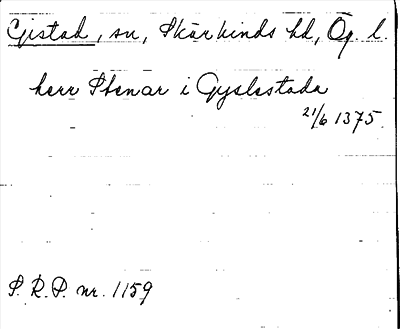 Gistad, sn, Skärkinds hd, Ög. l.
herr Stenar i Gyslestada
21/6 1375.
S. R. P. nr. 1159